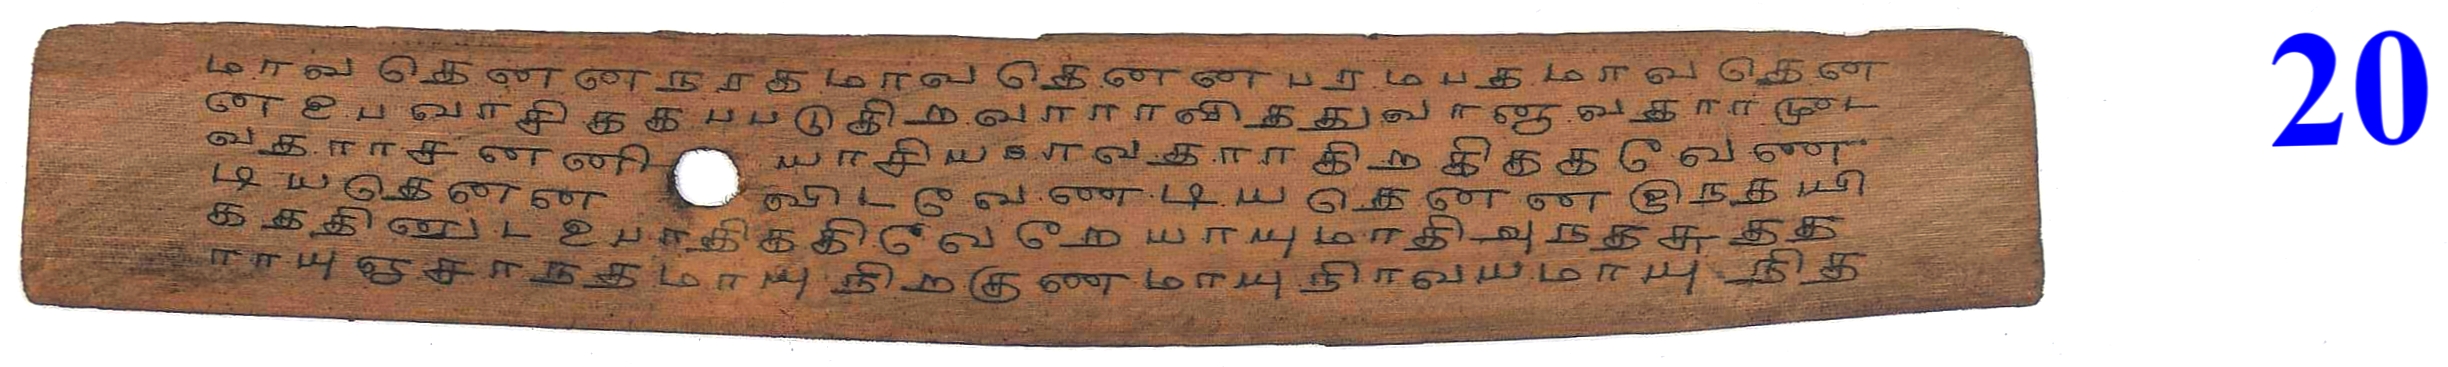 மாவதெனனநரகமாவதெனனபரமபதமாவதென
னஉபவாசிககபபடுகிறவாராவிதததுவானுவதாரமுட
வதாாசனனியாசியாாவதாாகிறகிககவேண
டியதெனனவிடவேணடியதெனனஇநதயி
தததினுடஉபாதிககிவேறேயாயுமாதியநதசுதத
ராயுஞசாநதமாயுநிறகுணமாயுநிரவயமாயுநித
20